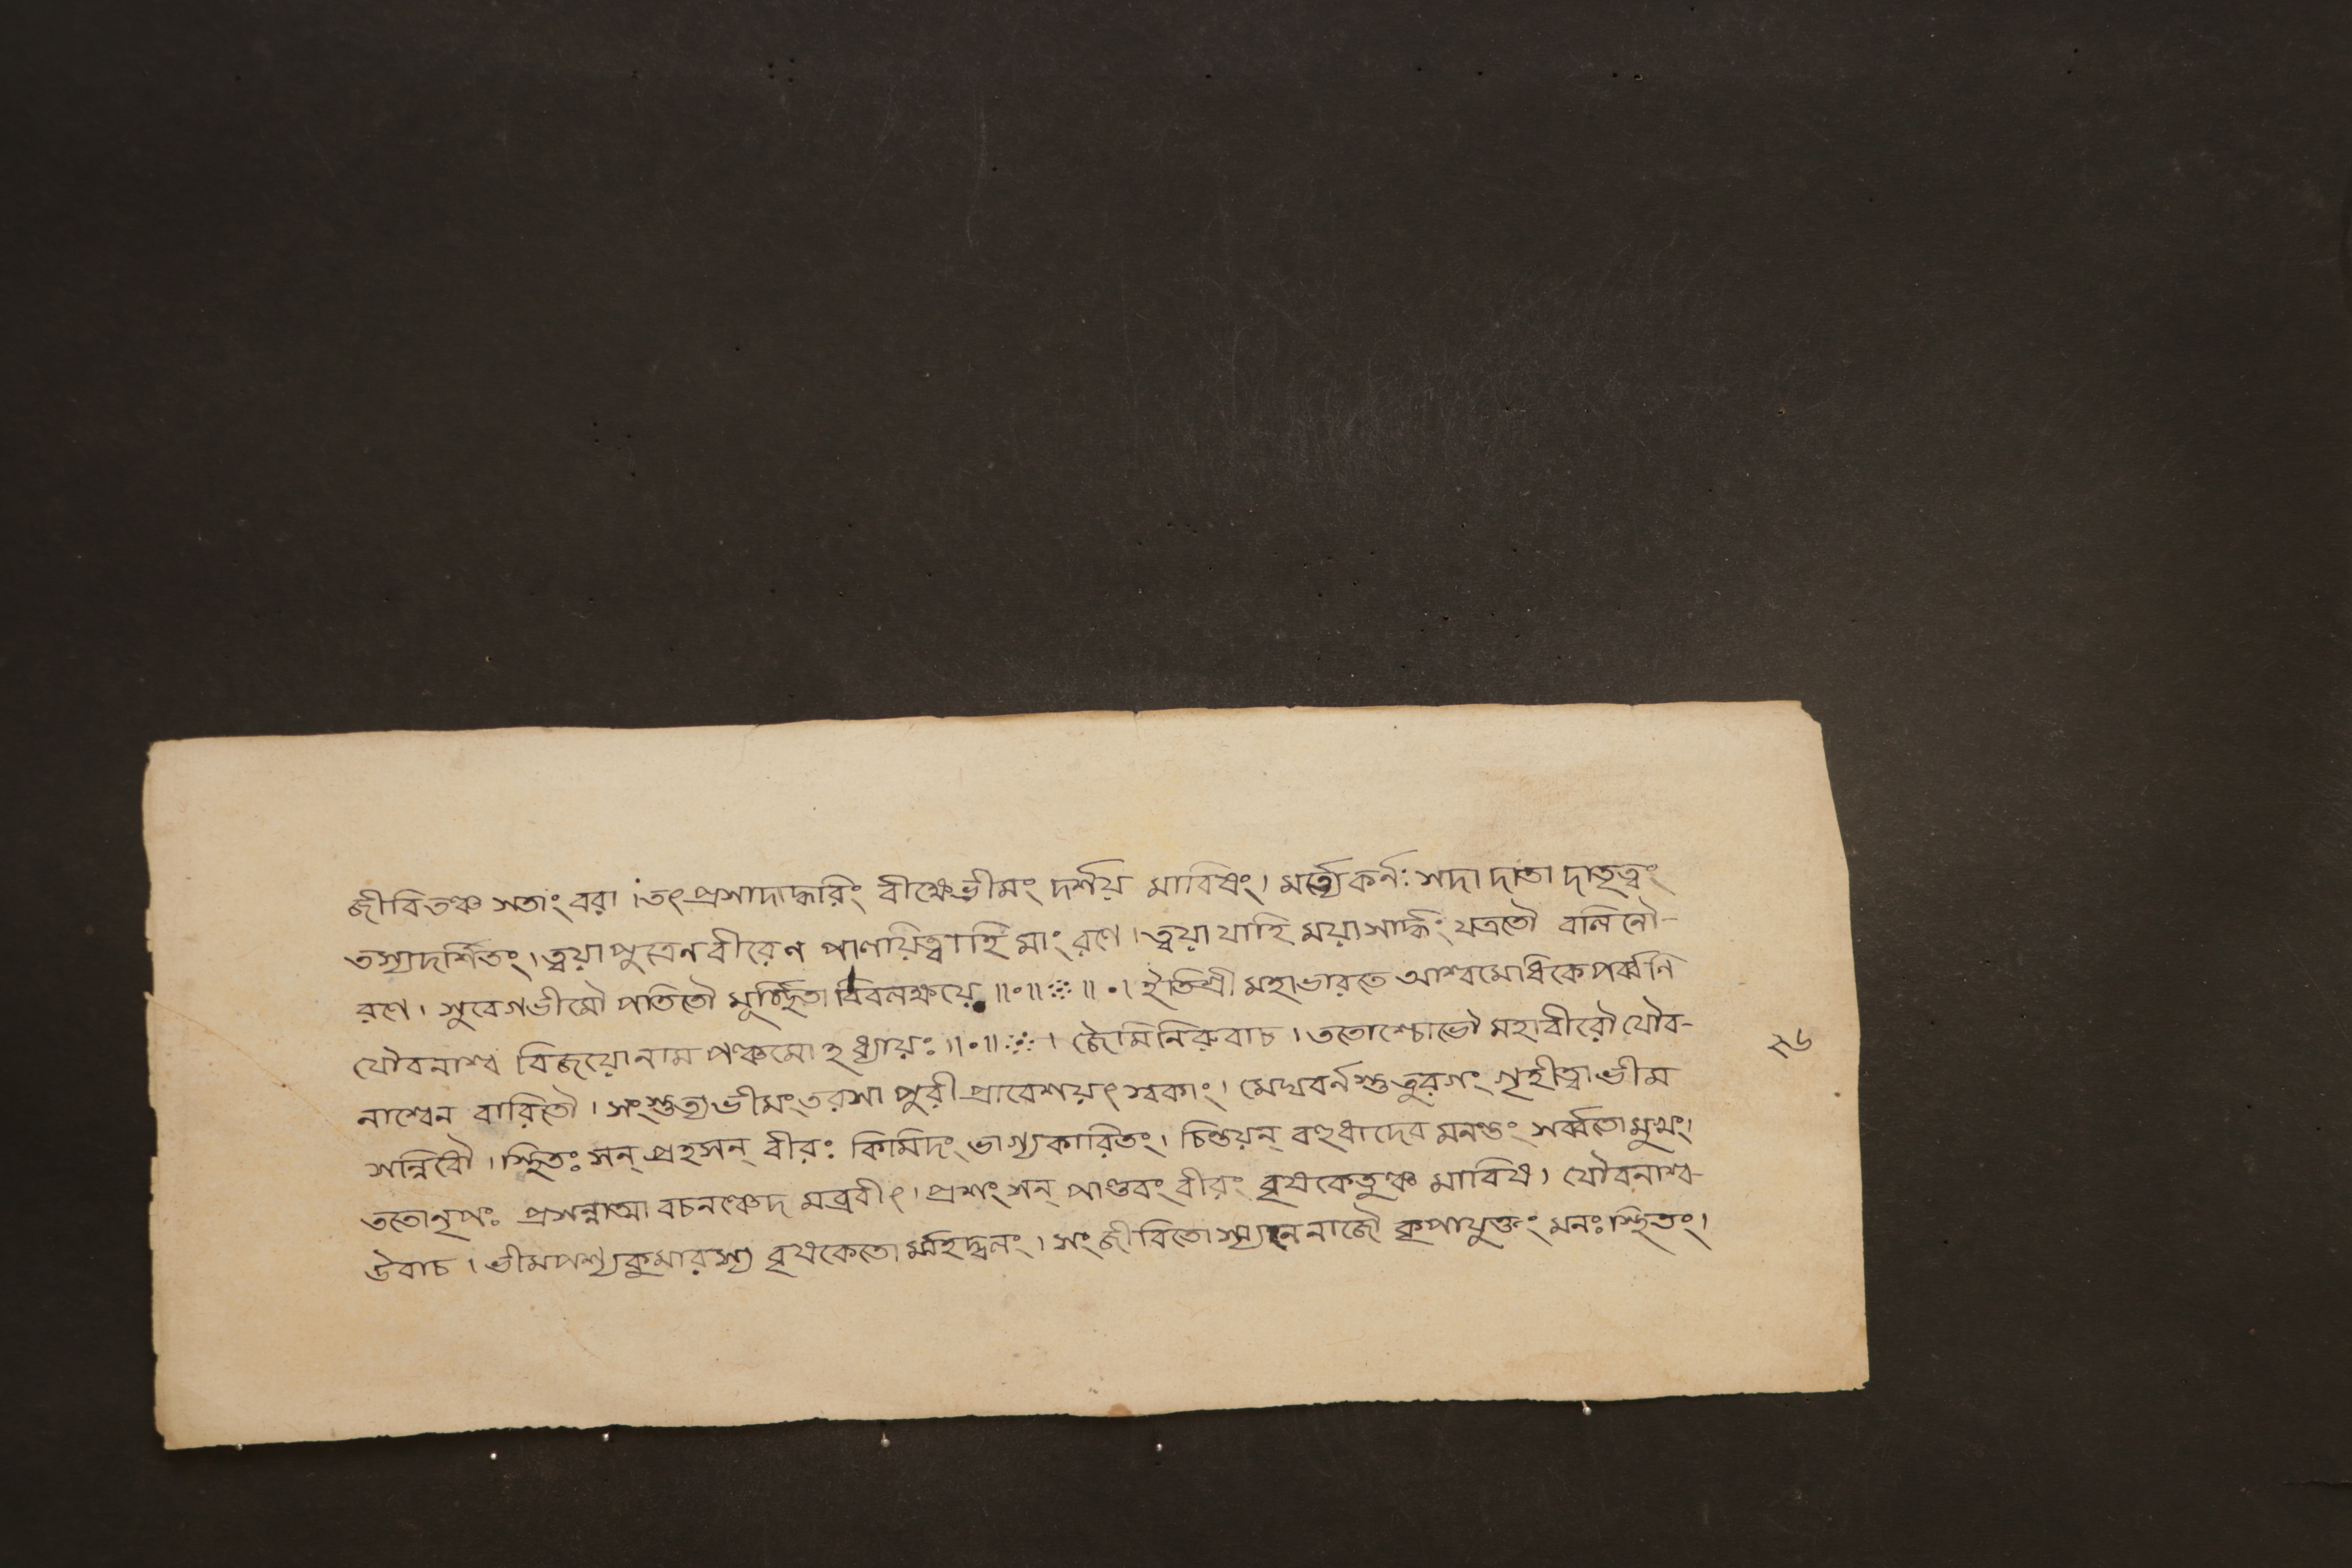 জীবিতঞ্চ সতাং বরা । তৎপ্রসাদাদ্ধরিং বীক্ষেভীমং দর্শয় মাবিষং । মর্ত্ত্যেকর্নঃ সদা দাতা দাতৃত্বং
তস্যদর্শিতং । ত্বয়াপুত্রেনবীরেণ পাণয়িত্বাহি মাং রণে । ত্বয়াযাহি ময়াসার্দ্ধং যত্রতৌ বলিনৌ-
রণে । সুবেগভীমৌ পতিতৌ মূর্চ্ছিতা ॥•॥ ॥•। ইতিশ্রী মহাভারতে আশ্বমেধিকেপর্ব্বণি
যৌবনাশ্ব বিজয়োনাম পঞ্চমোঽধ্যায়ঃ ॥•॥ । জৈমিনিরুবাচ । ততোশ্চোভৌ মহাবীরৌ যৌব-
নাশ্বেন বারিতৌ । সংস্তুত্যভীমংতরসা পুরীপ্রাবেশয়ৎস্বকাং । মেঘবর্নস্তুতুরগং গৃহীত্বাভীম
সন্নিধৌ । স্থিতঃ সন্ প্রহসন্ বীরঃ কিমিদং ভাগ্যকারিতং । চিন্তয়ন্ বহুধাদেব মনন্তং সর্ব্বতোমুখং ।
ততোনৃপঃ প্রসন্নাত্মা বচনঞ্চেদ মব্রবীৎ । প্রশংসন্ পাণ্ডবং বীরং বৃষকেতুঞ্চ মাবিষ । যৌবনাশ্ব-
উবাচ । ভীমপশ্যকুমারস্য বৃষকেতো র্মহদ্ধনং । সংজীবিতোস্ম্যনেনাজৌ কৃপাযুক্তং মনঃস্থিতং ।
২৬